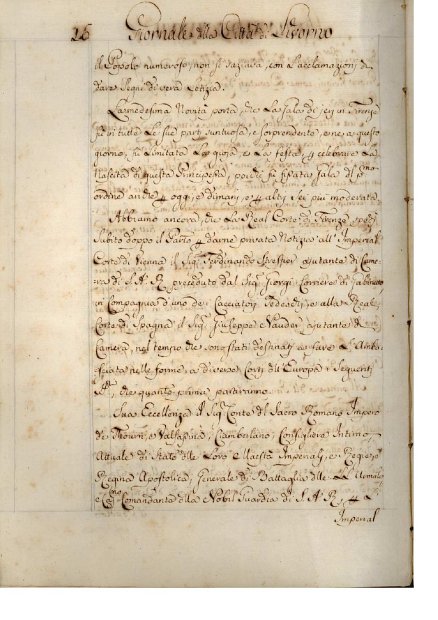 26 Giornale della Città di Livorno
il Popolo numeroso, non si saziava, con l'acclamazioni di
dare segni di vera Letizia.
La medesima Novità porta, che La sala di in Firenze
fu in tutte Le sue parti suntuosa, e sorprendente, e ne a questo
giorno, fù Limitata La gioja, e La festa, p celebrare La
Nascita di questa Principessa, poiche fù fissata Gala di p.mo
ordine anche p oggi, e dimani, e p altri Sei più moderata
Abbiamo ancora, che La Real Corte di Firenze spedì
subito doppo il Parto p darne private Notizie all' Imperial
Corte di Vienna il Sig.r Ferdinando ajutante di Came-
ra di S. A. R. preceduto dal Sig.r Giorgi Corriere di Gabinetto
in Compagnia d'uno dei Cacciatori Tedeschi, e alla Real
Corte di Spagna il Sig.r Giuseppe Nauder ajutante di
Camera, nel tempo che sono stati destinati a fare L'Amba-
sciata nelle forme, a diverse Corti dell'Europa i Seguenti
che quanto prima partiranno.
Sua Eccellenza il Sig.r Conte del Sacro Romano Impero
de Thourn, e Valsassina, Ciamberlano, Consigliere Intimo,
Attuale di Stato delle Loro Maestà Imperiali, e Regie, e
Regina Apostolica, Generale di Battaglia delle Loro Armate
e Comandante della Nobil Guardia di S. A. R., p L'
Imperial